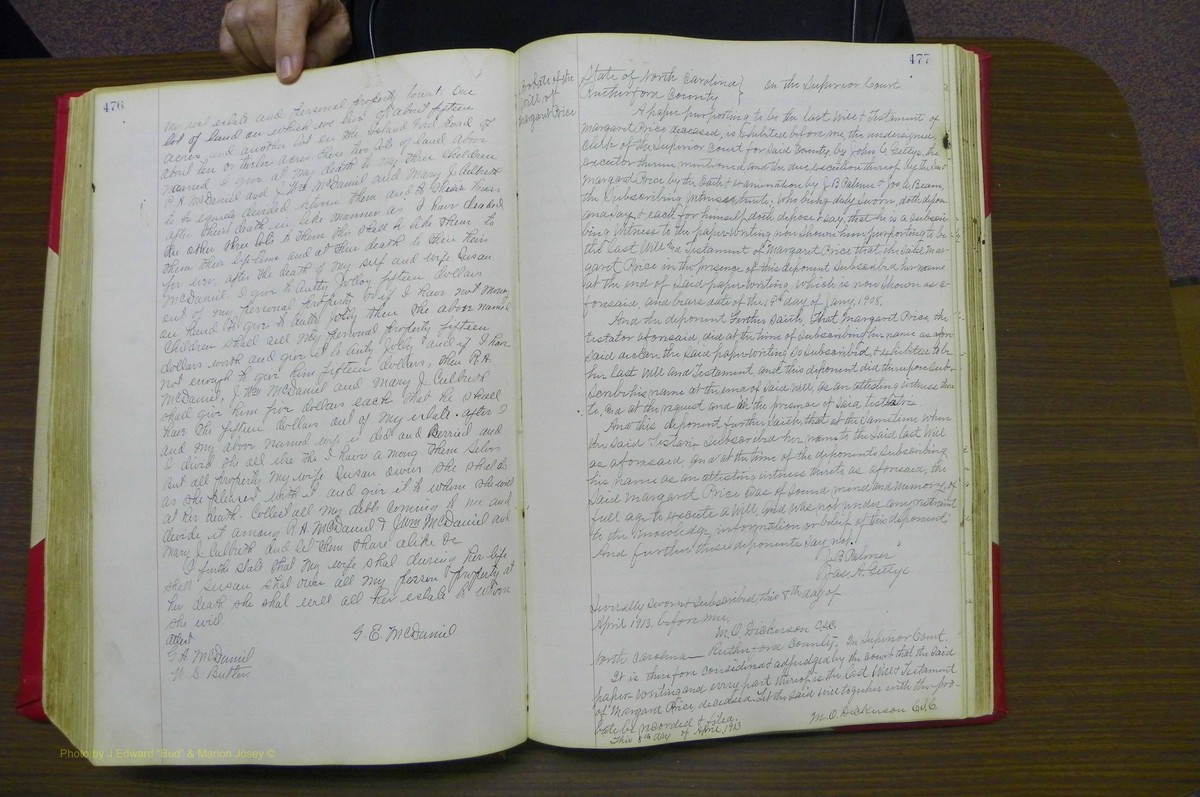 476
my real estate and personal property court. One
lot of land on which we live of about fifteen
acres and another lot on the Island Ford Road of
about ten or twelve acres these two lots of land above
named I give at my death to my three children
R A McDaniel and J Wm McDaniel and Mary J Culbreth
to be equally divided between them and
after their death in like manner as I have deeded
the other three lots to them the shal to like them to
them their lifetime and at their death to them their
for ever, after the death of my self and wife Susan
McDaniel I give to Autty Jolley fifteen dollars
out of my personal property but if I have not money
on hand to give to Autty Jolley then the above named
Children shall sell my personal property fifteen
dollars worth and give it to Autty Jolley and if I have
not enough to give him fifteen dollars, then R A
McDaniel, J Wm McDaniel and Mary J Culbreth
shall give him five dollars each that he shall
have the fifteen dollars out of my estate. after I
and my above named wife is ded and Berried and
I divid the all else the I have a mong them selvs
But all property my wife Susan owns she shal do
as she pleases with it and give it to where she will
at his death. Collect all my debts coming to me and
devide it among R A McDaniel & J Wm McDaniel and
Mary J Culbreth and let them share alike &c
I furth state that my wife shal during her life
shall Susan shal over all my person & property at
her death she shal will all her estate to whom
she will
Attest
G. E. McDaniel
McDaniel
Butler
477
Probate of the
Will of
Margaret Price
State of North Carolina }
Rutherford County } In the Superior Court
A paper purporting to be the last Will & Testament of
Margaret Price deceased, is exhibited before me, the undersigned,
Clerk of the Superior Court for said County by John C Gettys, the
executor therein mentioned and the due execution thereof by the said
Margaret Price by the Oath & examination by J. B Palmer & Jos A Beam,
the Subscribing Witnesses thereto; who being duly Sworn, doth depose
and say, & each for himself doth depose & say, that he is a subscri-
bing Witness to the paper-writing now shown him purporting to be
the last Will and Testament of Margaret Price that the said Mar-
garet Price in the presence of this deponent Subscribed her name
at the end of said paper-writing, which is now shown as a-
foresaid, and bears date of the day of Jany, 1908.
And the deponent further saith, that Margaret Price the
testator aforesaid, did at the time of subscribing her name as afore-
said declare the said paper-writing so subscribed, & exhibited to be
her last Will and Testament, and this deponent did thereupon sub-
scribe his name at the end of said Will, as an attesting witness there-
to, and at the request and in the presence of said testator.
And this deponent further saith, that at the same time when
the said Testator subscribed her name to the said last Will
as aforesaid, and at the time of the deponents subscribing
his name as an attesting witness thereto as aforesaid, the
said Margaret Price was of sound mind and memory, of
full age to execute a Will, and was not under any restraint
to the knowledge, information or belief of this deponent;
And further these deponents say not.
J. B Palmer
Jas. A. Gettys
Severally Sworn & Subscribed, this 8th day of
April 1913, before me,
M. O. Dickerson C.S.C.
North Carolina — Rutherford County. In Superior Court
It is therefore considered & adjudged by the Court that the said
paper-writing and every part thereof is the last Will & Testament
of Margaret Price, deceased. Let the said will together with the pro-
bate be recorded & filed.
This 8th day of April, 1913
M. O. Dickerson C.S.C.
Photo by J Edward "Bud" & Marion Josey ©